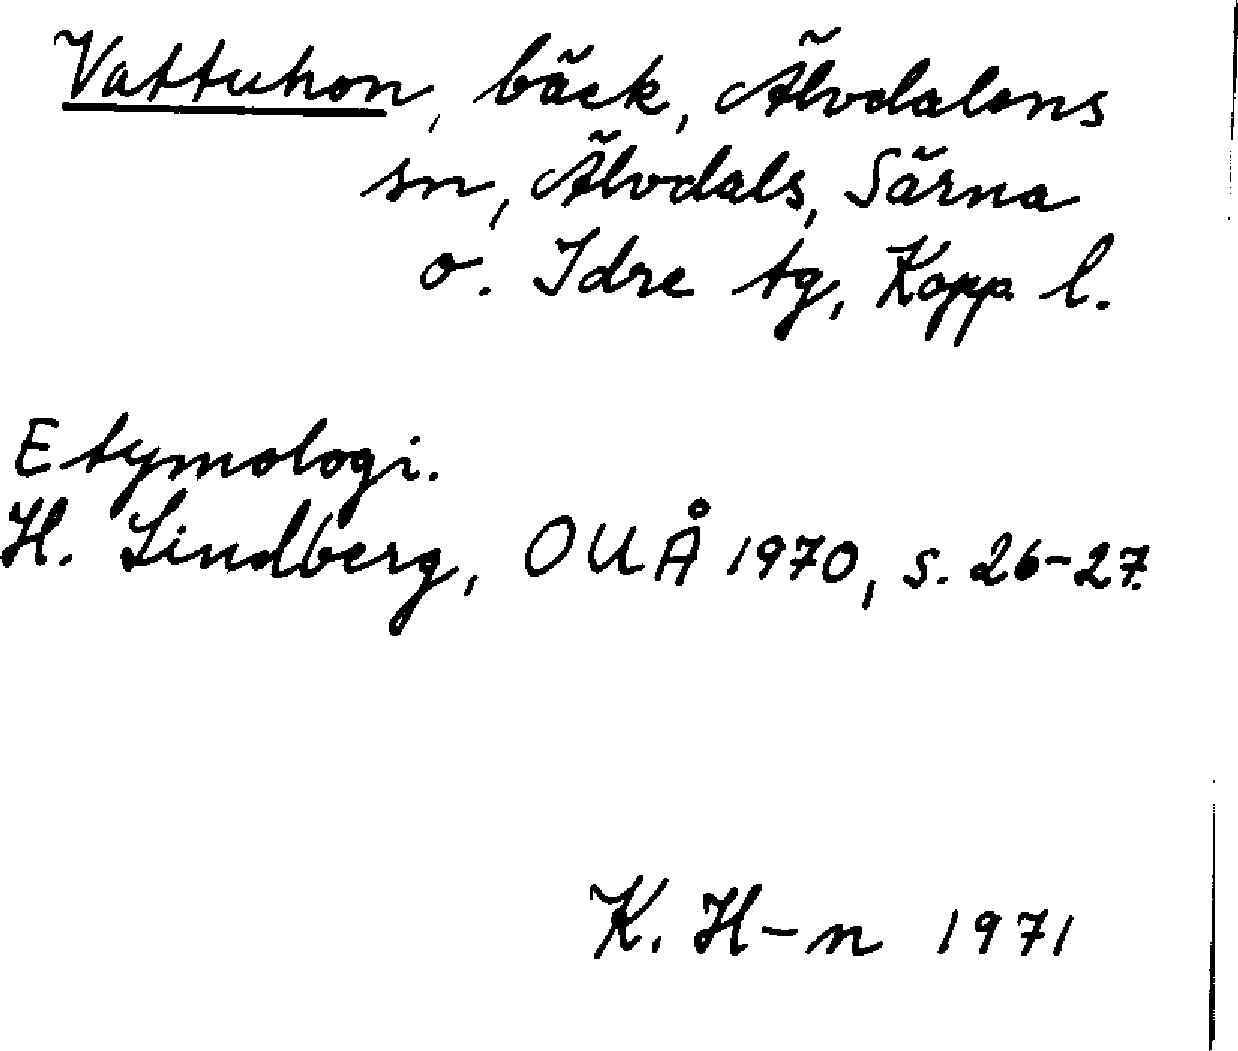 Vattuhon, bäck, Älvdalens
sn, Älvdals, Särna
o. Idre tg, Kopp l.
Etymologi.
H. Lindberg, OUÅ 1970, s. 26-27.
K. H-n 1971